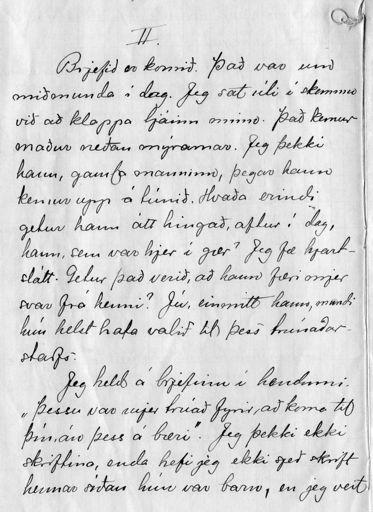 II.
Brjefið er komið. Það var um
miðmunda í dag. Jeg sat úti í skemmu
við að klappa ljáinn minn. Það kemur
maður neðan mýrarnar. Jeg þekki
hann, gamla manninn, þegar hann
kemur upp á túnið. Hvaða erindi
getur hann átt hingað, aftur í dag,
hann, sem var hjer í gær? Jeg fæ hjart-
slátt. Getur það verið, að hann færi mjer
svar frá henni? Jú, einmitt hann, mundi
hún helst hafa valið til þess trúnaðar-
starfs.
Jeg held á brjefinu í hendinni.
„Þessu var mjer trúað fyrir, að koma til
þín, án þess á bæri“. Jeg þekki ekki
skriftina, enda hefi jeg ekki sjeð skrift
hennar síðan hún var barn, en jeg veit